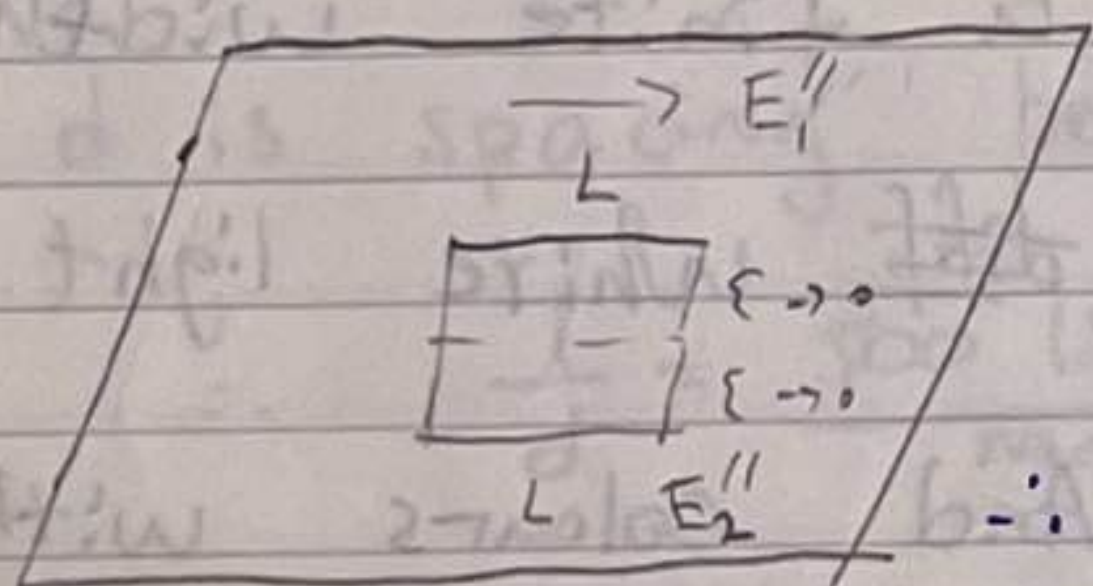 → E₁″
L
ε → 0
ε → 0
L E₂″
∴